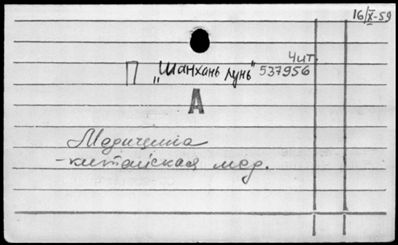 16/X-59
Чит.
П „Шанхань лунь" 537956
А
Медицина
-китайская мед.